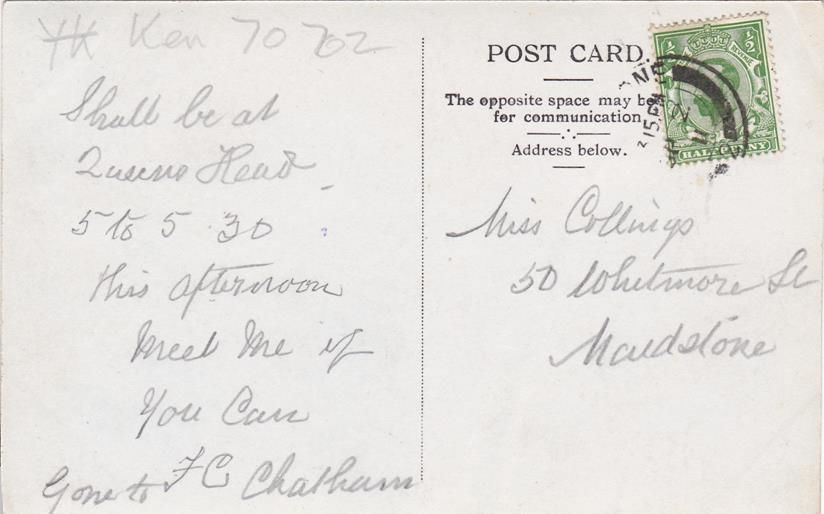 Ken 70702
Shall be at
Queens Head
5 to 5.30
this afternoon
Meet Me if
You Can
Gone to F C Chatham
POST CARD
The opposite space may be
for communication.
Address below.
Miss Collings
50 Whitmore St
Maidstone
½ ½
HALFPENNY
215PM